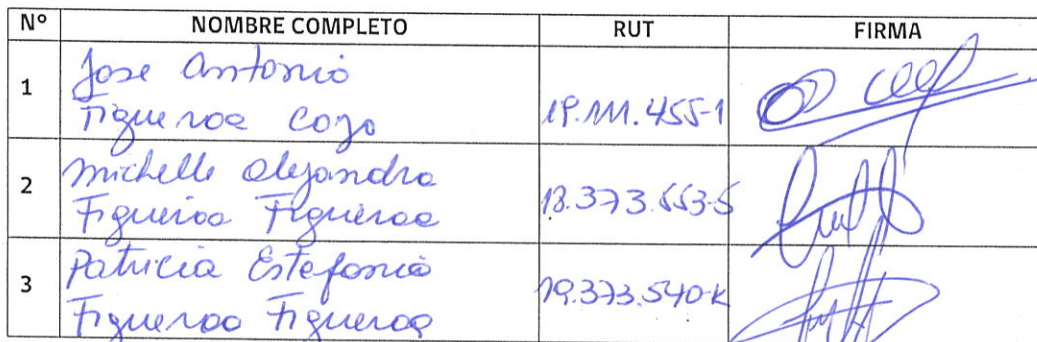 Nº NOMBRE COMPLETO RUT FIRMA
1 Jose Antonio
Figueroa Cozo 19.111.455-1
2 Michelle Alejandra
Figueroa Figueroa 18.373.553-5
3 Patricia Estefania
Figueroa Figueroa 19.373.540-K